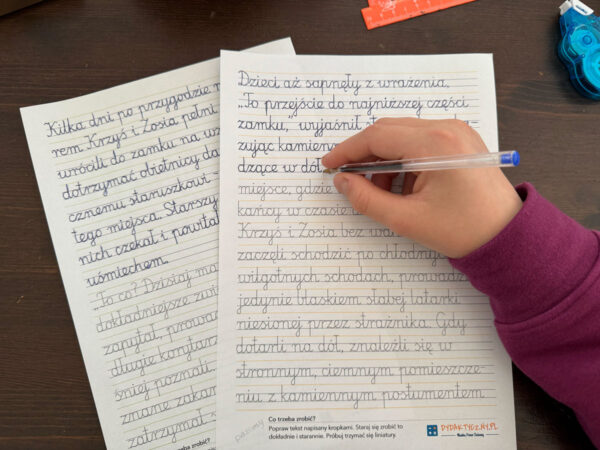 Kilka dni po przygodzie
rem Krzyś i Zosia pełni
wrócili do zamku na
dotrzymać obietnicy
cznemu staruszkowi
tego miejsca. Starszy
nich czekał i powitał
uśmiechem.
„To co? Dzisiaj
dokładniejsze
zapytał,
długie
śniej poznali
znane
zatrzymał
robić?
Dzieci aż sapnęły z wrażenia.
„To przejście do najniższej części
zamku,” wyjaśnił
zując
dzące w dół
miejsce, gdzie
kańcy w czasie
Krzyś i Zosia bez
zaczęli schodzić po
wilgotnych schodach,
jedynie blaskiem słabej latarki
niesionej przez strażnika. Gdy
dotarli na dół, znaleźli się w
stronnym, ciemnym pomieszcze-
niu z kamiennym postumentem
Co trzeba zrobić?
Popraw tekst napisany kropkami. Staraj się zrobić to
dokładnie i starannie. Próbuj trzymać się liniatury.
DYDAKTYCZNY.PL